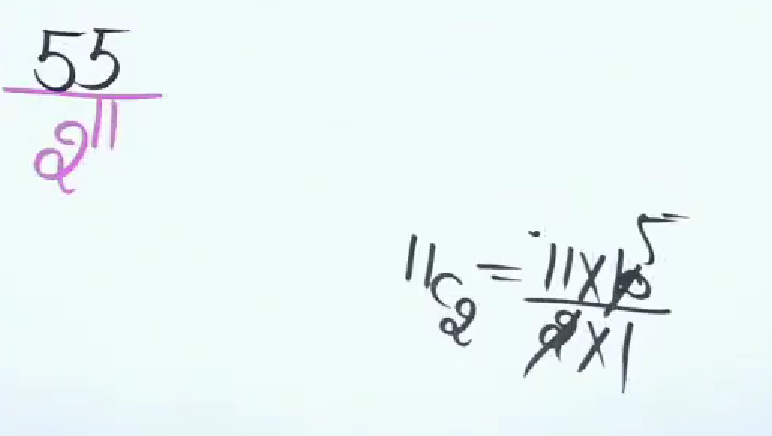 55
2¹¹
¹¹C₂ = 11x10 5
2x1